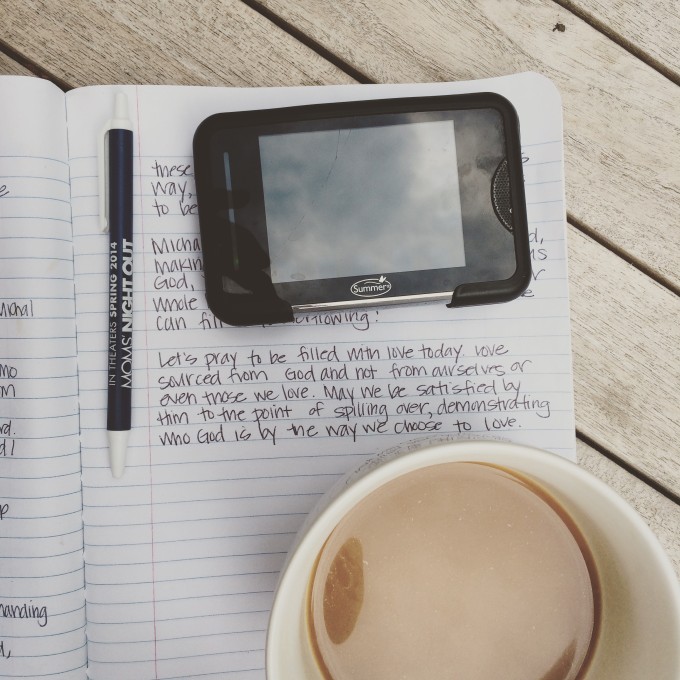 these
way,
to be
Micha
makin
God,
whole
can fil
overflowing!
Let's pray to be filled with love today. Love
sourced from God and not from ourselves or
even those we love. May we be satisfied by
Him to the point of spilling over, demonstrating
who God is by the way we choose to love.
IN THEATERS SPRING 2014
MOMS' NIGHT OUT
Summer
anding